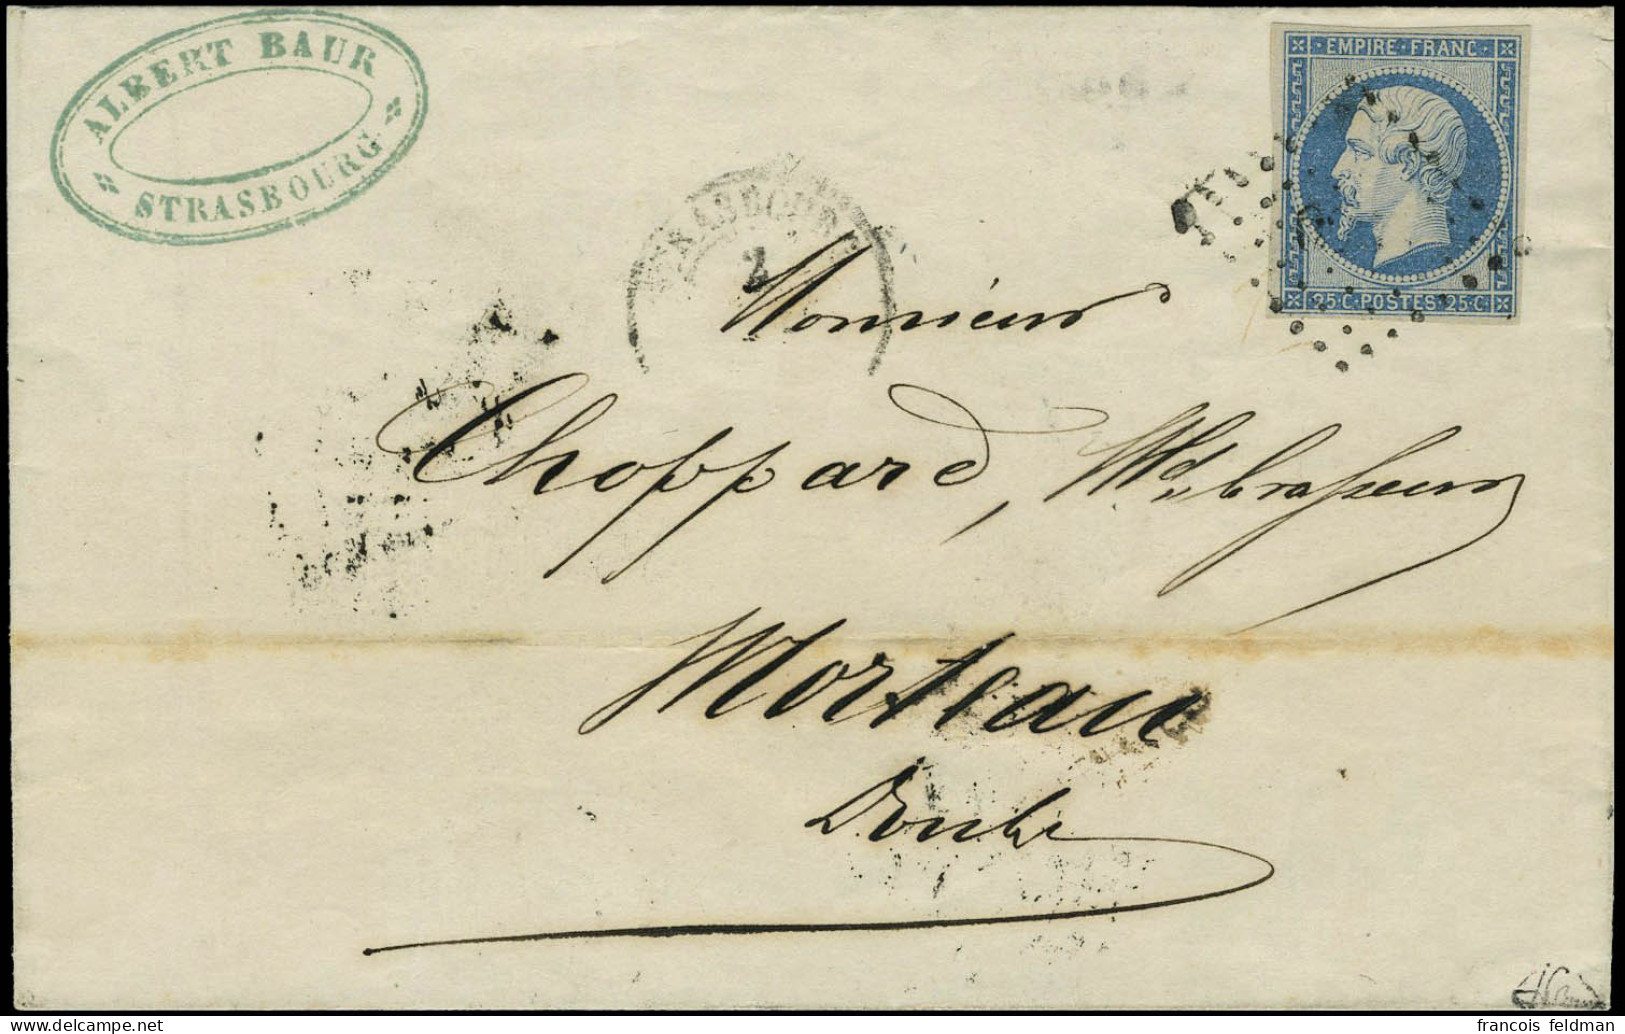 ALBERT BAUR
STRASBOURG
EMPIRE FRANC
25 C POSTES 25 C
STRASBOURG
2
Monsieur
Choppard, Md brasseur
Morteau
Doubs
delcampe.net
francois feldman